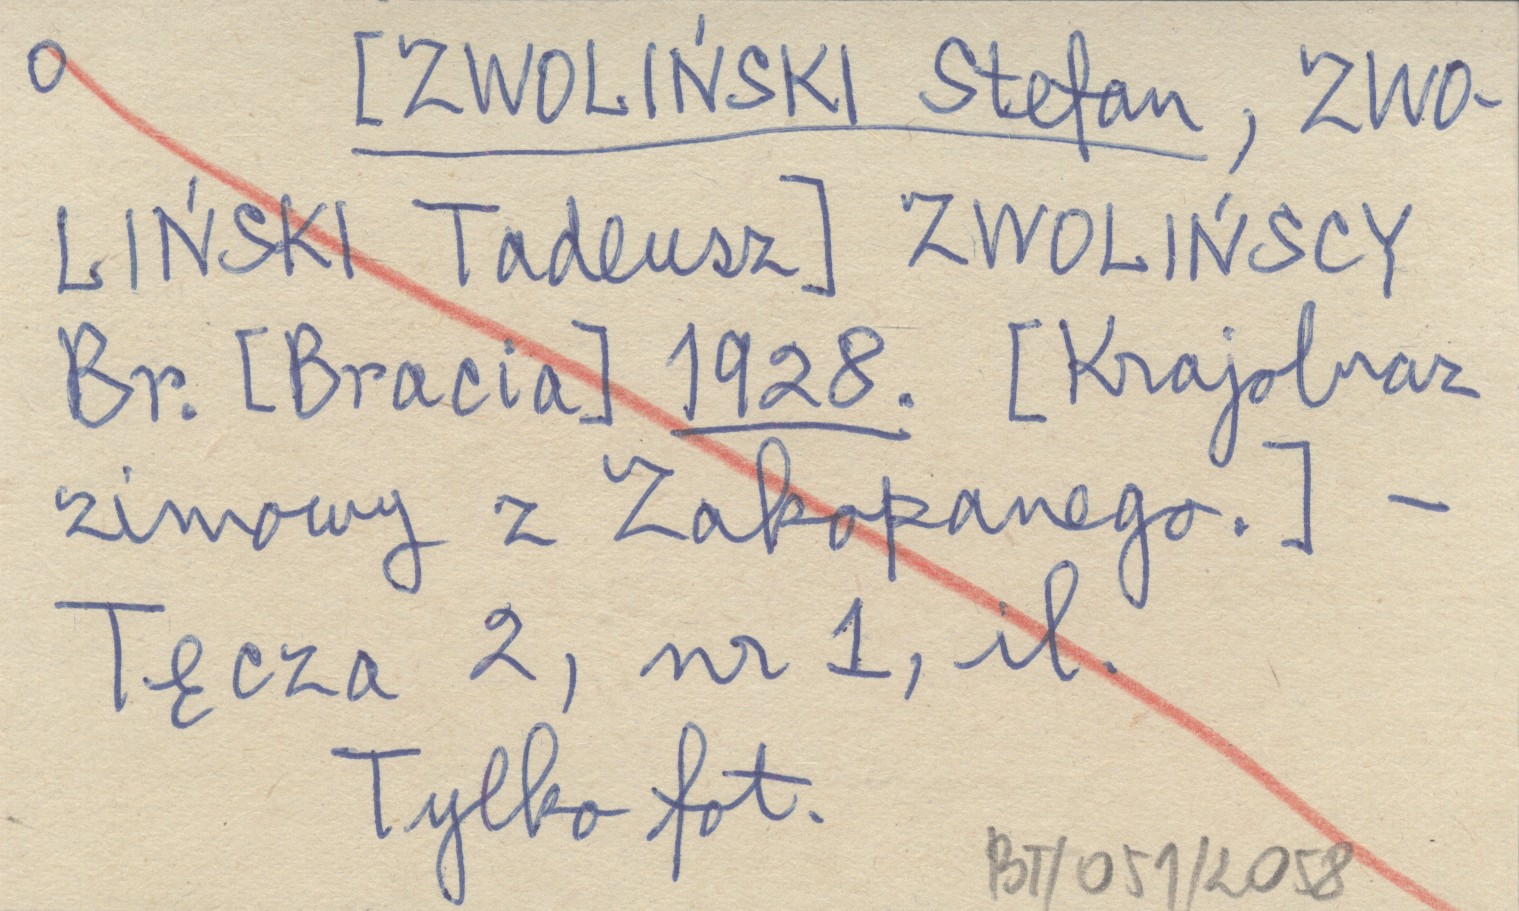 o [ZWOLIŃSKI Stefan, ZWO-
LIŃSKI Tadeusz] ZWOLIŃSCY
Br. [Bracia] 1928. [Krajobraz
zimowy z Zakopanego.] –
Tęcza 2, nr 1, il.
Tylko fot.
BT/051/2058